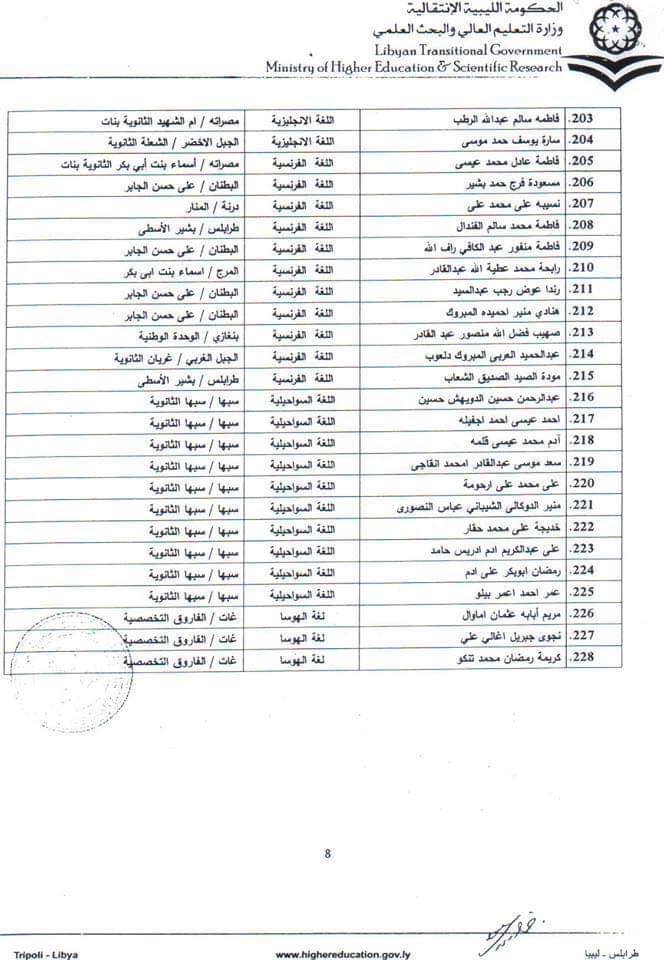 الحكومة الليبية الإنتقالية
وزارة التعليم العالي والبحث العلمي
Libyan Transitional Government
Ministry of Higher Education & Scientific Research
203. فاطمه سالم عبدالله الرطب اللغة الانجليزية مصراته / ام الشهيد الثانوية بنات
204. سارة يوسف حمد موسى اللغة الانجليزية الجبل الاخضر / الشعلة الثانوية
205. فاطمة عادل محمد عيسى اللغة الفرنسية مصراته / أسماء بنت أبي بكر الثانوية بنات
206. مسعودة فرج حمد بشير اللغة الفرنسية البطنان / على حسن الجابر
207. نسيبه على محمد على اللغة الفرنسية درنة / المنار
208. فاطمة محمد سالم القندال اللغة الفرنسية طرابلس / بشير الأسطى
209. فاطمة منفور عبد الكافي راف الله اللغة الفرنسية البطنان / على حسن الجابر
210. رابحة محمد عطية الله عبدالقادر اللغة الفرنسية المرج / اسماء بنت ابى بكر
211. رندا عوض رجب عبدالسيد اللغة الفرنسية البطنان / على حسن الجابر
212. هنادي منير احميده المبروك اللغة الفرنسية البطنان / على حسن الجابر
213. صهيب فضل الله منصور عبد القادر اللغة الفرنسية بنغازي / الوحدة الوطنية
214. عبدالحميد العربى المبروك دلعوب اللغة الفرنسية الجبل الغربي / غريان الثانوية
215. مودة الصيد الصديق الشعاب اللغة الفرنسية طرابلس / بشير الأسطى
216. عبدالرحمن حسين الدويهش حسين اللغة السواحيلية سبها / سبها الثانوية
217. احمد عيسى احمد اجفيله اللغة السواحيلية سبها / سبها الثانوية
218. آدم محمد عيسى قلمه اللغة السواحيلية سبها / سبها الثانوية
219. سعد موسى عبدالقادر امحمد انقاجى اللغة السواحيلية سبها / سبها الثانوية
220. على محمد على ارحومة اللغة السواحيلية سبها / سبها الثانوية
221. منير الدوكالى الشيباني عباس النصورى اللغة السواحيلية سبها / سبها الثانوية
222. خديجة على محمد حقار اللغة السواحيلية سبها / سبها الثانوية
223. على عبدالكريم ادم ادريس حامد اللغة السواحيلية سبها / سبها الثانوية
224. رمضان ابوبكر على ادم اللغة السواحيلية سبها / سبها الثانوية
225. عمر احمد اعمر بيلو اللغة السواحيلية سبها / سبها الثانوية
226. مريم أبابه عثمان اماوال لغة الهوسا غات / الفاروق التخصصية
227. نجوى جبريل اغالي علي لغة الهوسا غات / الفاروق التخصصية
228. كريمة رمضان محمد تنكو لغة الهوسا غات / الفاروق التخصصية
8
Tripoli - Libya www.highereducation.gov.ly طرابلس - ليبيا